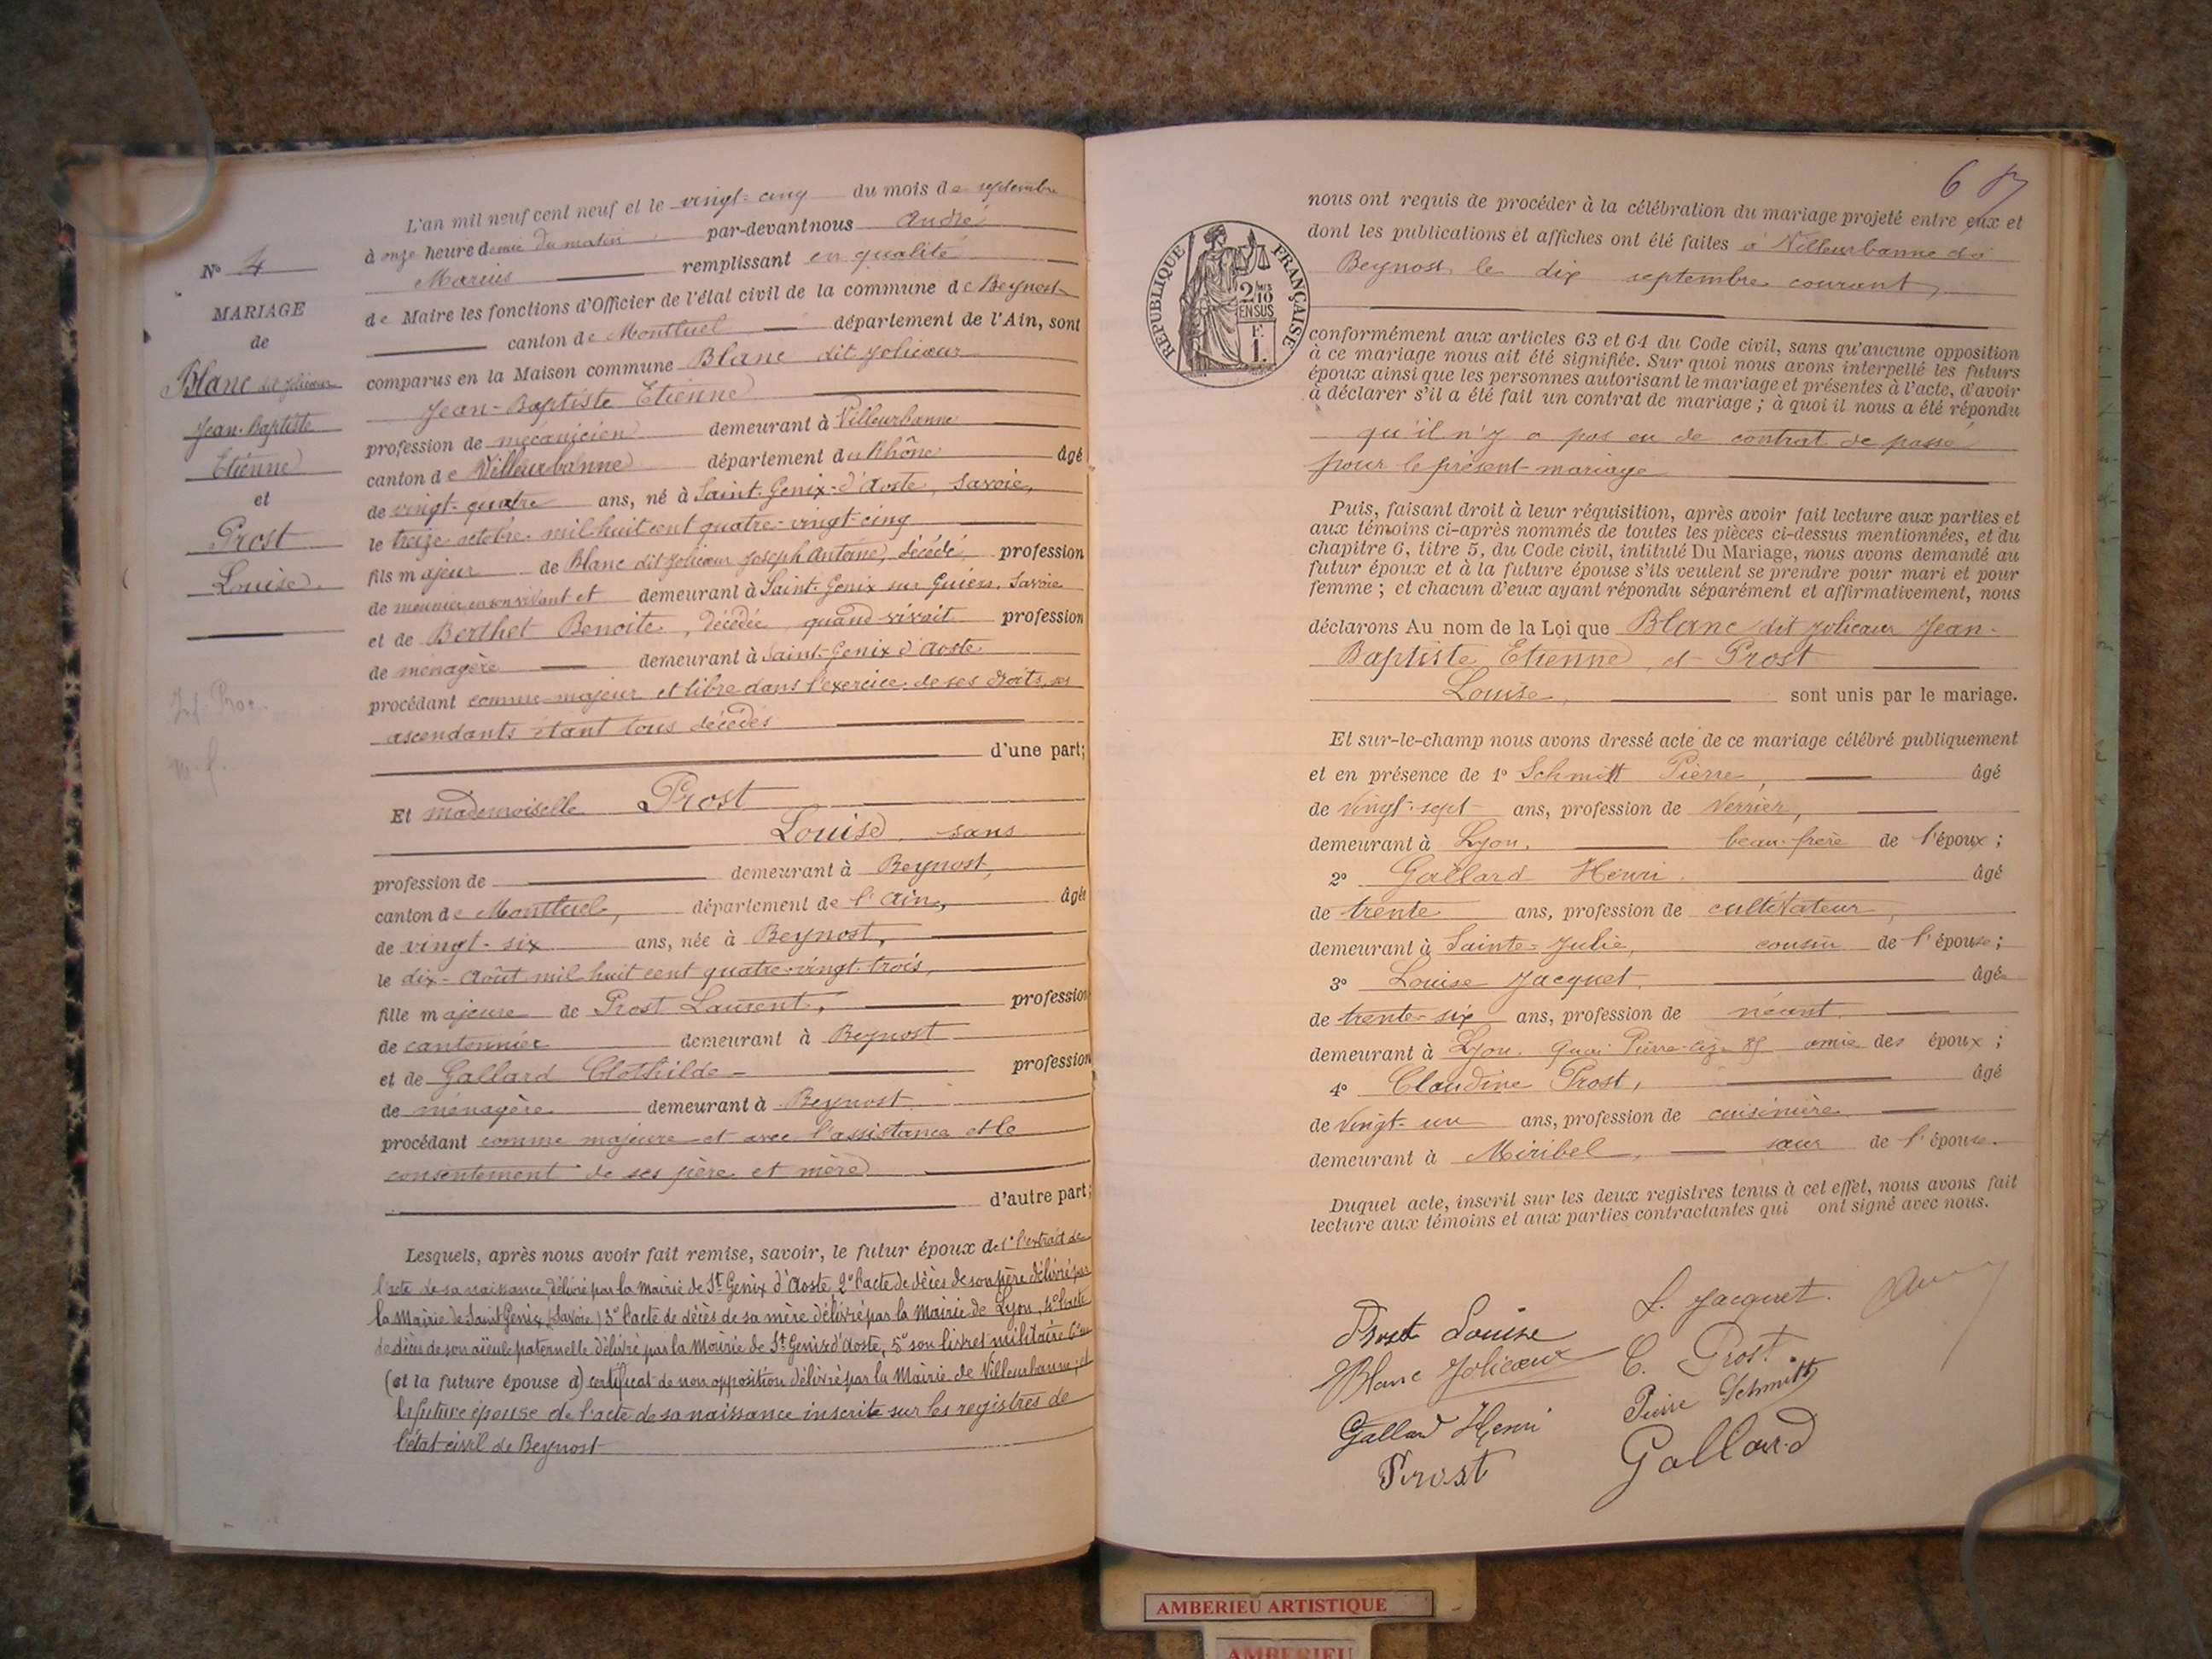 L'an mil neuf cent neuf et le vingt-cinq du mois de septembre
à onze heure demie du matin par-devant nous André
Marius remplissant en qualité
de Maire les fonctions d'Officier de l'état civil de la commune de Beynost
canton de Montluel département de l'Ain, sont
comparus en la Maison commune Blanc dit Jolicœur
Jean-Baptiste Etienne
profession de mécanicien demeurant à Villeurbanne
canton de Villeurbanne département du Rhône âgé
de vingt-quatre ans, né à Saint-Genix-d'Aoste, Savoie,
le treize octobre mil huit cent quatre-vingt-cinq
fils majeur de Blanc dit Jolicœur Joseph Antoine, décédé, profession
de meunier en son vivant et demeurant à Saint-Genix sur Guiers, Savoie
et de Berthet Benoite, décédée, quand vivait profession
de ménagère demeurant à Saint-Genix d'Aoste
procédant comme majeur et libre dans l'exercice de ses droits, ses
ascendants étant tous décédés
d'une part;
Et mademoiselle Prost
Louise, sans
profession de demeurant à Beynost,
canton de Montluel, département de l'Ain, âgée
de vingt-six ans, née à Beynost,
le dix-Août mil huit cent quatre-vingt-trois,
fille majeure de Prost Laurent, profession
de cantonnier demeurant à Beynost
et de Gallard Clothilde - profession
de ménagère demeurant à Beynost
procédant comme majeure et avec l'assistance et le
consentement de ses père et mère
d'autre part;
Lesquels, après nous avoir fait remise, savoir, le futur époux de 1° l'extrait de
l'acte de sa naissance, délivré par la mairie de St Genix d'Aoste, 2° l'acte de décès de son père délivré par
la Mairie de Saint Genix (Savoie) 3° l'acte de décès de sa mère délivré par la Mairie de Lyon, 4° l'acte
de décès de son aïeule paternelle délivré par la Mairie de St Genix d'Aoste, 5° son livret militaire 6° un
(et la future épouse d) certificat de non opposition délivré par la Mairie de Villeurbanne; et
la future épouse de l'acte de sa naissance inscrite sur les registres de
l'état-civil de Beynost
N° 4
MARIAGE
de
Blanc dit Jolicœur
Jean-Baptiste
Etienne
et
Prost
Louise.
67
REPUBLIQUE FRANÇAISE
2/10
EN SUS
F.
1.
nous ont requis de procéder à la célébration du mariage projeté entre eux et
dont les publications et affiches ont été faites à Villeurbanne
Beynost, le dix septembre courant,
conformément aux articles 63 et 64 du Code civil, sans qu'aucune opposition
à ce mariage nous ait été signifiée. Sur quoi nous avons interpellé les futurs
époux ainsi que les personnes autorisant le mariage et présentes à l'acte, d'avoir
à déclarer s'il a été fait un contrat de mariage; à quoi il nous a été répondu
qu'il n'y a pas eu de contrat de passé
pour le présent mariage
Puis, faisant droit à leur réquisition, après avoir fait lecture aux parties et
aux témoins ci-après nommés de toutes les pièces ci-dessus mentionnées, et du
chapitre 6, titre 5, du Code civil, intitulé Du Mariage, nous avons demandé au
futur époux et à la future épouse s'ils veulent se prendre pour mari et pour
femme; et chacun d'eux ayant répondu séparément et affirmativement, nous
déclarons Au nom de la Loi que Blanc dit Jolicœur Jean-
Baptiste Etienne et Prost
Louise, sont unis par le mariage.
Et sur-le-champ nous avons dressé acte de ce mariage célébré publiquement
et en présence de 1° Schmitt Pierre, âgé
de vingt-sept ans, profession de verrier,
demeurant à Lyon, beau-frère de l'époux;
2° Gallard Henri. âgé
de trente ans, profession de cultivateur,
demeurant à Sainte-Julie, cousin de l'épouse;
3° Louise Jacquet âgée
de trente-six ans, profession de néant.
demeurant à Lyon. Quai Pierre-Cize amie des époux;
4° Claudine Prost, âgé
de vingt-un ans, profession de cuisinière
demeurant à Miribel, sœur de l'épouse.
Duquel acte, inscrit sur les deux registres tenus à cet effet, nous avons fait
lecture aux témoins et aux parties contractantes qui ont signé avec nous.
Prost Louise
L. Jacquet.
Blanc Jolicœur
C. Prost
Gallard Henri
Pierre Schmitt
Prost
Gallard
AMBERIEU ARTISTIQUE
AMBERIEU